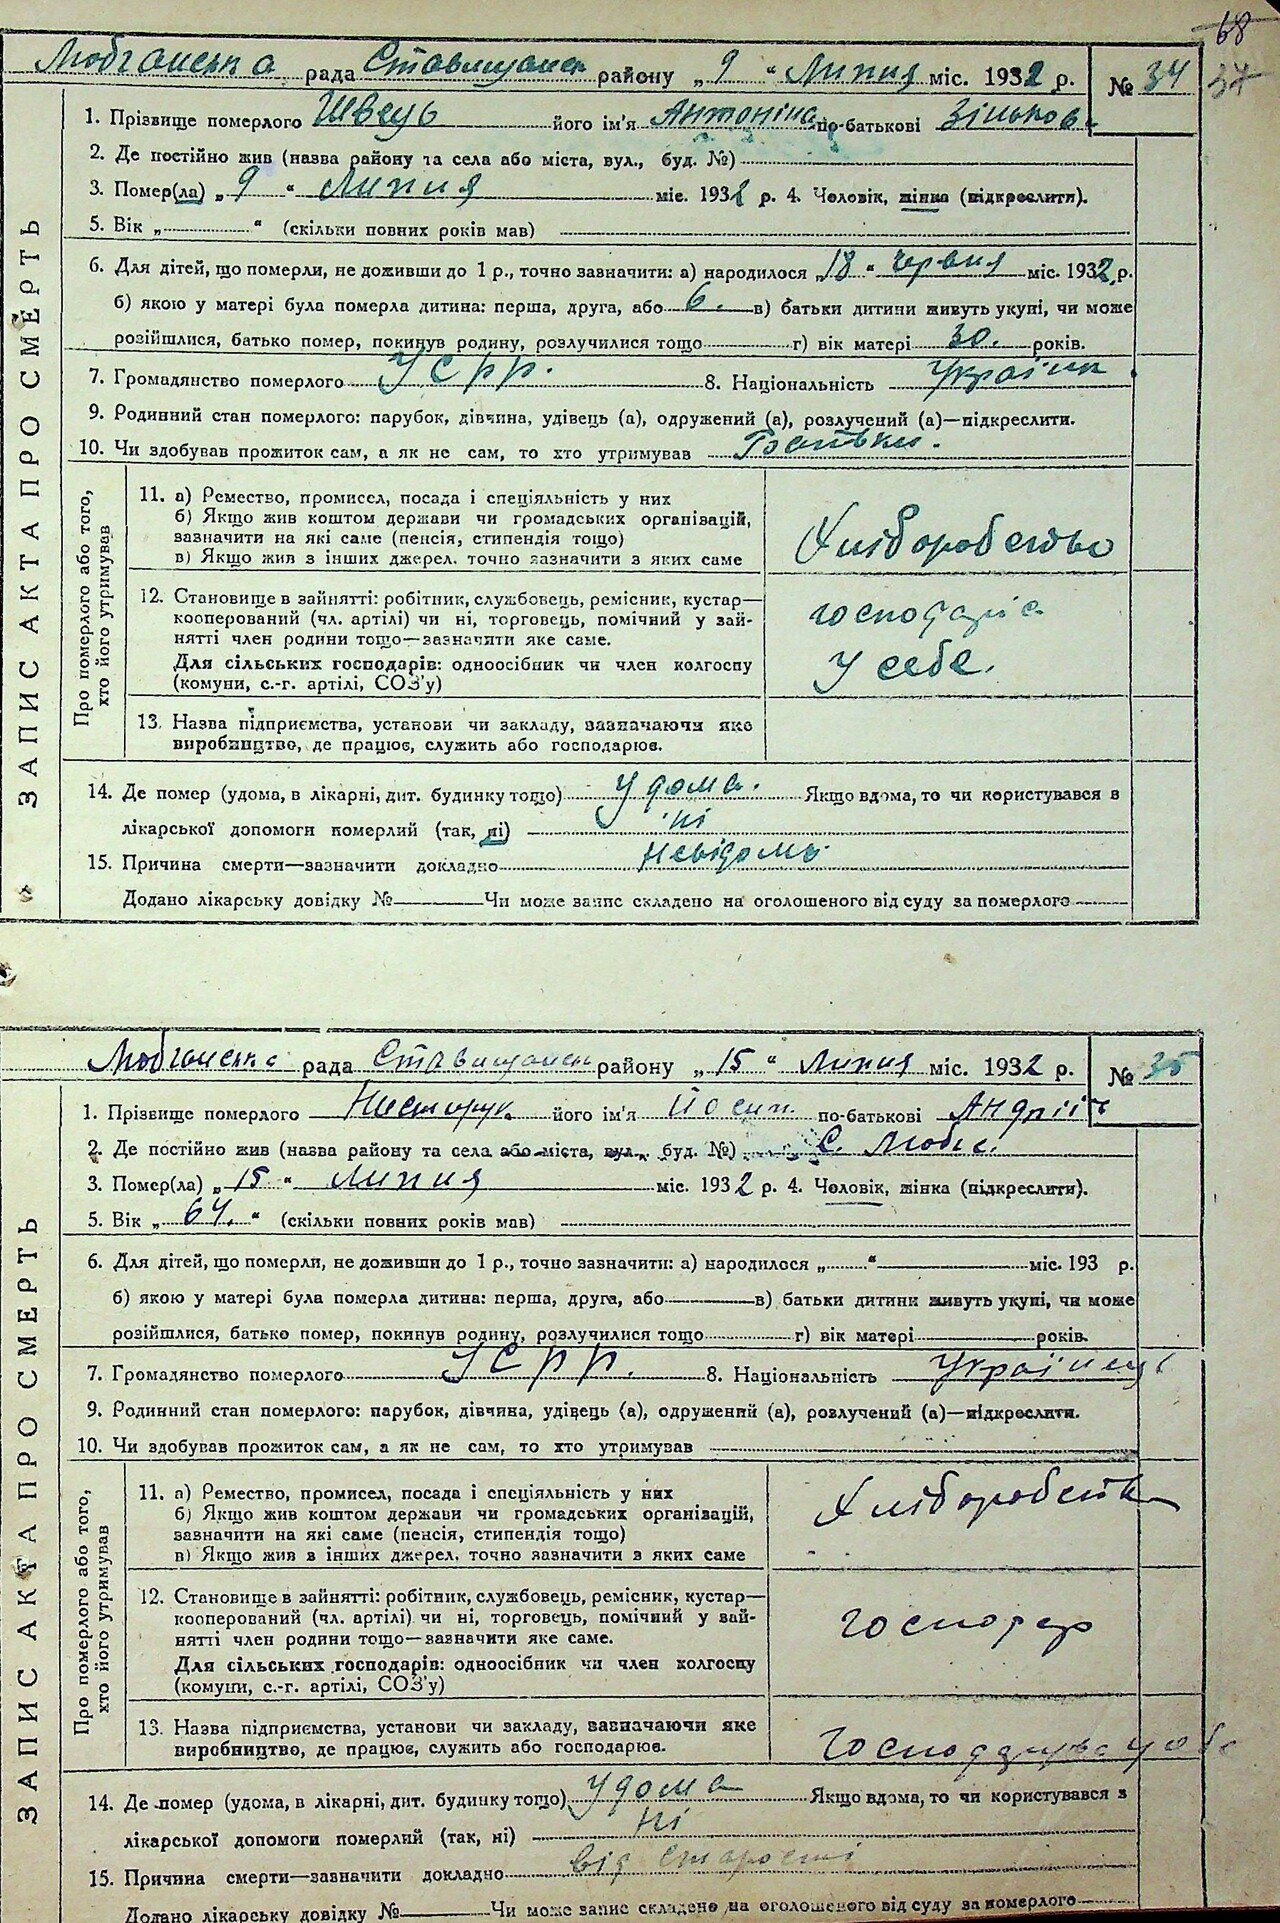 68
Любчанська рада Ставищанськ району „9“ Липня міс. 1932 р. № 34 37
1. Прізвище померлого Швець його ім'я Антоніна по-батькові Зіньков.
2. Де постійно жив (назва району та села або міста, вул., буд. №)
3. Помер(ла) „9“ Липня міс. 1932 р. 4. Чоловік, жінка (підкреслити).
5. Вік „ “ (скільки повних років мав)
6. Для дітей, що померли, не доживши до 1 р., точно зазначити: а) народилося „18“ червня міс. 1932 р.
б) якою у матері була померла дитина: перша, друга, або 6. в) батьки дитини живуть укупі, чи може
розійшлися, батько помер, покинув родину, розлучилися тощо г) вік матері 30. років.
7. Громадянство померлого УСРР. 8. Національність Україн.
9. Родинний стан померлого: парубок, дівчина, удівець (а), одружений (а), розлучений (а)—підкреслити.
10. Чи здобував прожиток сам, а як не сам, то хто утримував Батьки.
ЗАПИС АКТА ПРО СМЕРТЬ
Про померлого або того,
хто його утримував
11. а) Ремество, промисел, посада і спеціяльність у них
б) Якщо жив коштом держави чи громадських організацій,
зазначити на які саме (пенсія, стипендія тощо)
в) Якщо жив з інших джерел, точно зазначити з яких саме
Хліборобство
12. Становище в зайнятті: робітник, службовець, ремісник, кустар—
кооперований (чл. артілі) чи ні, торговець, помічний у зай-
нятті член родини тощо—зазначити яке саме.
Для сільських господарів: одноосібник чи член колгоспу
(комуни, с.-г. артілі, СОЗ'у)
у себе.
13. Назва підприємства, установи чи закладу, зазначаючи яке
виробництво, де працює, служить або господарює.
14. Де помер (удома, в лікарні, дит. будинку тощо) удома. Якщо вдома, то чи користувався з
лікарської допомоги померлий (так, ні) ні
15. Причина смерти—зазначити докладно Невідомо
Додано лікарську довідку № Чи може запис складено на оголошеного від суду за померлого
Любчанська рада Ставищанськ району „15“ Липня міс. 1932 р. № 35
1. Прізвище померлого Нестерук його ім'я Йосип. по-батькові Андрій
2. Де постійно жив (назва району та села або міста, вул., буд. №) С. Любч.
3. Помер(ла) „15“ Липня міс. 1932 р. 4. Чоловік, жінка (підкреслити).
5. Вік „64.“ (скільки повних років мав)
6. Для дітей, що померли, не доживши до 1 р., точно зазначити: а) народилося „ “ міс. 193 р.
б) якою у матері була померла дитина: перша, друга, або в) батьки дитини живуть укупі, чи може
розійшлися, батько помер, покинув родину, розлучилися тощо г) вік матері років.
7. Громадянство померлого УСРР. 8. Національність Українець
9. Родинний стан померлого: парубок, дівчина, удівець (а), одружений (а), розлучений (а)—підкреслити.
10. Чи здобував прожиток сам, а як не сам, то хто утримував
ЗАПИС АКТА ПРО СМЕРТЬ
Про померлого або того,
хто його утримував
11. а) Ремество, промисел, посада і спеціяльність у них
б) Якщо жив коштом держави чи громадських організацій,
зазначити на які саме (пенсія, стипендія тощо)
в) Якщо жив з інших джерел, точно зазначити з яких саме
Хліборобств
12. Становище в зайнятті: робітник, службовець, ремісник, кустар—
кооперований (чл. артілі) чи ні, торговець, помічний у зай-
нятті член родини тощо—зазначити яке саме.
Для сільських господарів: одноосібник чи член колгоспу
(комуни, с.-г. артілі, СОЗ'у)
господар
13. Назва підприємства, установи чи закладу, зазначаючи яке
виробництво, де працює, служить або господарює.
14. Де помер (удома, в лікарні, дит. будинку тощо) удома Якщо вдома, то чи користувався з
лікарської допомоги померлий (так, ні) ні
15. Причина смерти—зазначити докладно від старости
Додано лікарську довідку № Чи може запис складено на оголошеного від суду за померлого